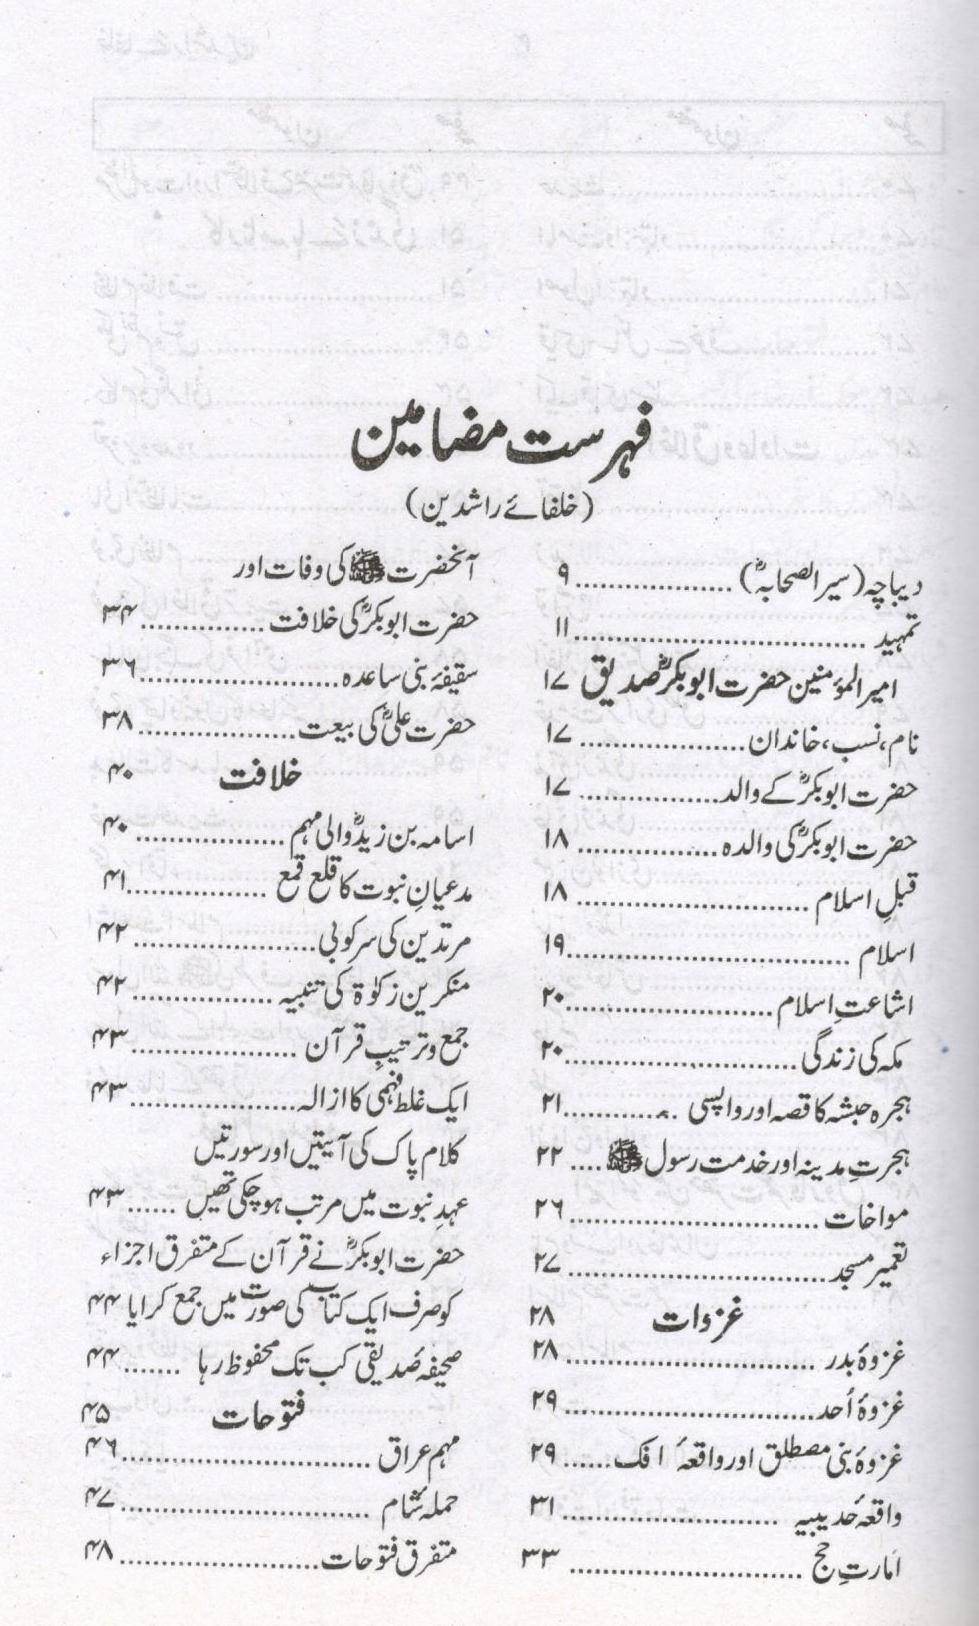 فہرست مضامین
(خلفائے راشدین)
دیباچہ (سیر الصحابہؓ) ................ ۹
تمہید ................ ۱۱
امیر المؤمنین حضرت ابوبکرؓ صدیق ۱۷
نام، نسب، خاندان ................ ۱۷
حضرت ابوبکرؓ کے والد ................ ۱۷
حضرت ابوبکرؓ کی والدہ ................ ۱۸
قبلِ اسلام ................ ۱۸
اسلام ................ ۱۹
اشاعتِ اسلام ................ ۲۰
مکہ کی زندگی ................ ۲۰
ہجرہ حبشہ کا قصہ اور واپسی ................ ۲۱
ہجرتِ مدینہ اور خدمت رسول ﷺ .... ۲۲
مواخات ................ ۲۶
تعمیر مسجد ................ ۲۷
غزوات ۲۸
غزوۂ بدر ................ ۲۸
غزوۂ اُحد ................ ۲۹
غزوۂ بنی مصطلق اور واقعۂ افک ...... ۲۹
واقعۂ حدیبیہ ................ ۳۱
امارتِ حج ................ ۳۳
آنحضرت ﷺ کی وفات اور
حضرت ابوبکرؓ کی خلافت ................ ۳۴
سقیفۂ بنی ساعدہ ................ ۳۶
حضرت علیؓ کی بیعت ................ ۳۸
خلافت ۴۰
اسامہ بن زیدؓ والی مہم ................ ۴۰
مدعیانِ نبوت کا قلع قمع ................ ۴۱
مرتدین کی سرکوبی ................ ۴۲
منکرین زکوٰۃ کی تنبیہ ................ ۴۲
جمع و ترتیبِ قرآن ................ ۴۳
ایک غلط فہمی کا ازالہ ................ ۴۳
کلام پاک کی آیتیں اور سورتیں
عہدِ نبوت میں مرتب ہو چکی تھیں ...... ۴۳
حضرت ابوبکرؓ نے قرآن کے متفرق اجزاء
کو صرف ایک کتاب کی صورت میں جمع کرایا ۴۴
صحیفۂ صدیقی کب تک محفوظ رہا ........ ۴۴
فتوحات ۴۵
مہم عراق ................ ۴۶
حملۂ شام ................ ۴۷
متفرق فتوحات ................ ۴۸